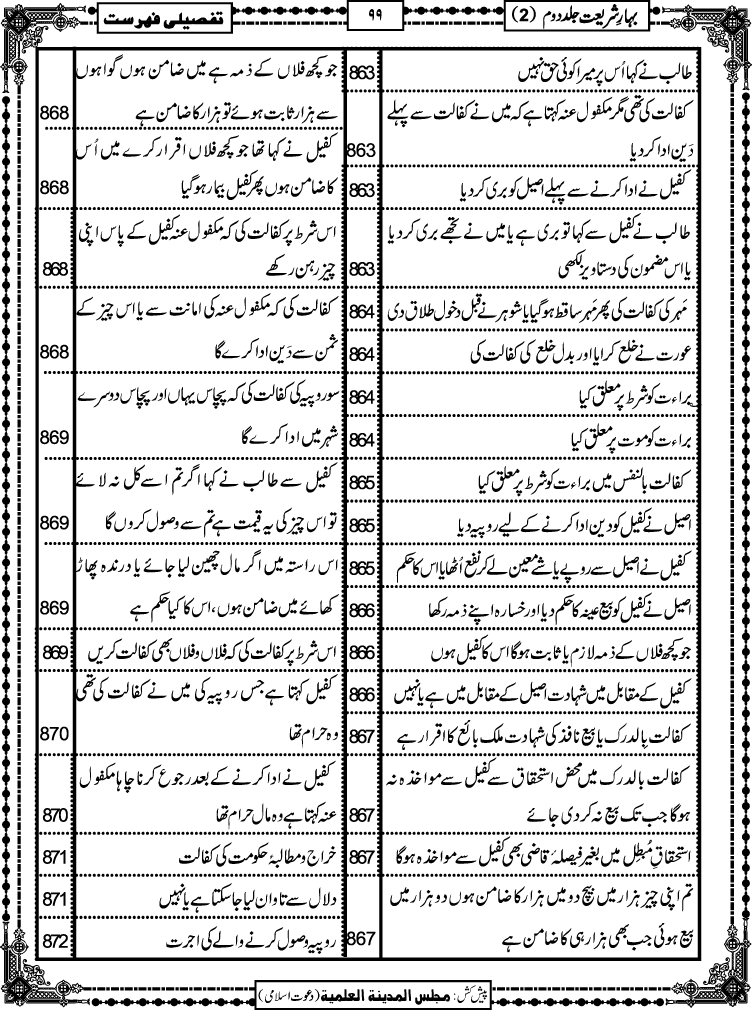 بہارِشریعت جلد دوم (2)
۹۹
تفصیلی فہرست
طالب نے کہا اُس پر میرا کوئی حق نہیں 863
کفالت کی تھی مگر مکفول عنہ کہتا ہے کہ میں نے کفالت سے پہلے
دَین ادا کر دیا 863
کفیل نے ادا کرنے سے پہلے اصیل کو بری کر دیا 863
طالب نے کفیل سے کہا تو بری ہے یا میں نے تجھے بری کر دیا
یا اس مضمون کی دستاویز لکھی 863
مَہر کی کفالت کی پھر مَہر ساقط ہوگیا یا شوہر نے قبل دخول طلاق دی 864
عورت نے خلع کرایا اور بدل خلع کی کفالت کی 864
براءت کو شرط پر معلق کیا 864
براءت کو موت پر معلق کیا 864
کفالت بالنفس میں براءت کو شرط پر معلق کیا 865
اصیل نے کفیل کو دین ادا کرنے کے لیے روپیہ دیا 865
کفیل نے اصیل سے روپے یا شے معین لے کر نفع اُٹھایا اس کا حکم 865
اصیل نے کفیل کو بیع عینہ کا حکم دیا اور خسارہ اپنے ذمہ رکھا 866
جو کچھ فلاں کے ذمہ لازم یا ثابت ہوگا اس کا کفیل ہوں 866
کفیل کے مقابل میں شہادت اصیل کے مقابل میں ہے یا نہیں 866
کفالت بالدرک یا بیع نافذ کی شہادت ملک بائع کا اقرار ہے 867
کفالت بالدرک میں محض استحقاق سے کفیل سے مواخذہ نہ
ہوگا جب تک بیع نہ کر دی جائے 867
استحقاق مُبطِل میں بغیر فیصلۂ قاضی بھی کفیل سے مواخذہ ہوگا 867
تم اپنی چیز ہزار میں بیچ دو میں ہزار کا ضامن ہوں دو ہزار میں
بیع ہوئی جب بھی ہزار ہی کا ضامن ہے 867
جو کچھ فلاں کے ذمہ ہے میں ضامن ہوں گواہوں
سے ہزار ثابت ہوئے تو ہزار کا ضامن ہے 868
کفیل نے کہا تھا جو کچھ فلاں اقرار کرے میں اُس
کا ضامن ہوں پھر کفیل بیمار ہوگیا 868
اس شرط پر کفالت کی کہ مکفول عنہ کفیل کے پاس اپنی
چیز رہن رکھے 868
کفالت کی کہ مکفول عنہ کی امانت سے یا اس چیز کے
ثمن سے دَین ادا کرے گا 868
سو روپیہ کی کفالت کی کہ پچاس یہاں اور پچاس دوسرے
شہر میں ادا کرے گا 869
کفیل سے طالب نے کہا اگر تم اسے کل نہ لائے
تو اس چیز کی یہ قیمت ہے تم سے وصول کروں گا 869
اس راستہ میں اگر مال چھین لیا جائے یا درندہ پھاڑ
کھائے میں ضامن ہوں، اس کا کیا حکم ہے 869
اس شرط پر کفالت کی کہ فلاں و فلاں بھی کفالت کریں 869
کفیل کہتا ہے جس روپیہ کی میں نے کفالت کی تھی
وہ حرام تھا 870
کفیل نے ادا کرنے کے بعد رجوع کرنا چاہا مکفول
عنہ کہتا ہے وہ مال حرام تھا 870
خراج و مطالبۂ حکومت کی کفالت 871
دلال سے تاوان لیا جاسکتا ہے یا نہیں 871
روپیہ وصول کرنے والے کی اجرت 872
پیش کش: مجلس المدینة العلمیة (دعوت اسلامی)